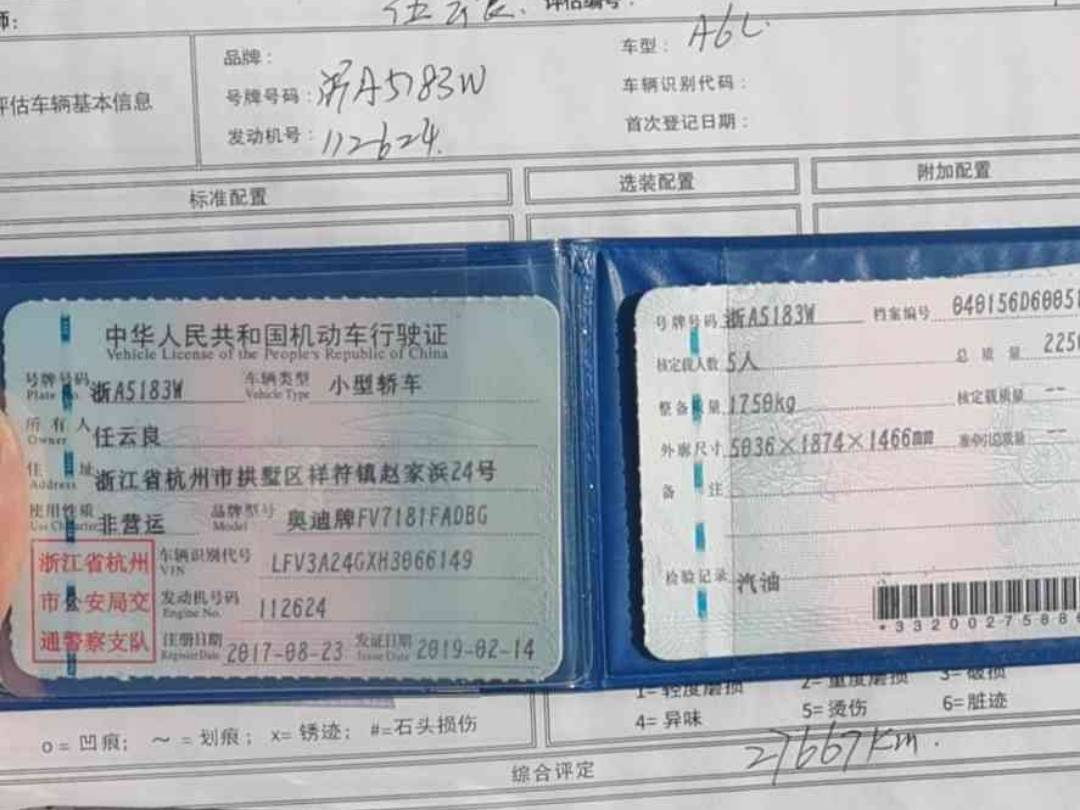 师：
任云良. 评估编号：
评估车辆基本信息
品牌：
车型： A6L
号牌号码：浙A5183W
车辆识别代码：
发动机号：112624.
首次登记日期：
标准配置
选装配置
附加配置
中华人民共和国机动车行驶证
Vehicle License of the People's Republic of China
号牌号码 浙A5183W 车辆类型 小型轿车
Plate No. Vehicle Type
所有人 任云良
Owner
住址 浙江省杭州市拱墅区祥符镇赵家浜24号
Address
使用性质 非营运 品牌型号 奥迪牌FV7181FADBG
Use Character Model
浙江省杭州市公安局交通警察支队
车辆识别代号 LFV3A24GXH3066149
VIN
发动机号码 112624
Engine No.
注册日期 2017-08-23 发证日期 2019-02-14
Register Date Issue Date
号牌号码 浙A5183W 档案编号 040156D6005
核定载人数 5人 总质量 225
整备质量 1750kg 核定载质量 --
外廓尺寸 5036×1874×1466mm 准牵引总质量 --
备注
检验记录 汽油
*33200275088
1=轻度磨损 2=重度磨损 3=破损
4=异味 5=烫伤 6=脏迹
o=凹痕； ～=划痕； x=锈迹； #=石头损伤
27667km.
综合评定